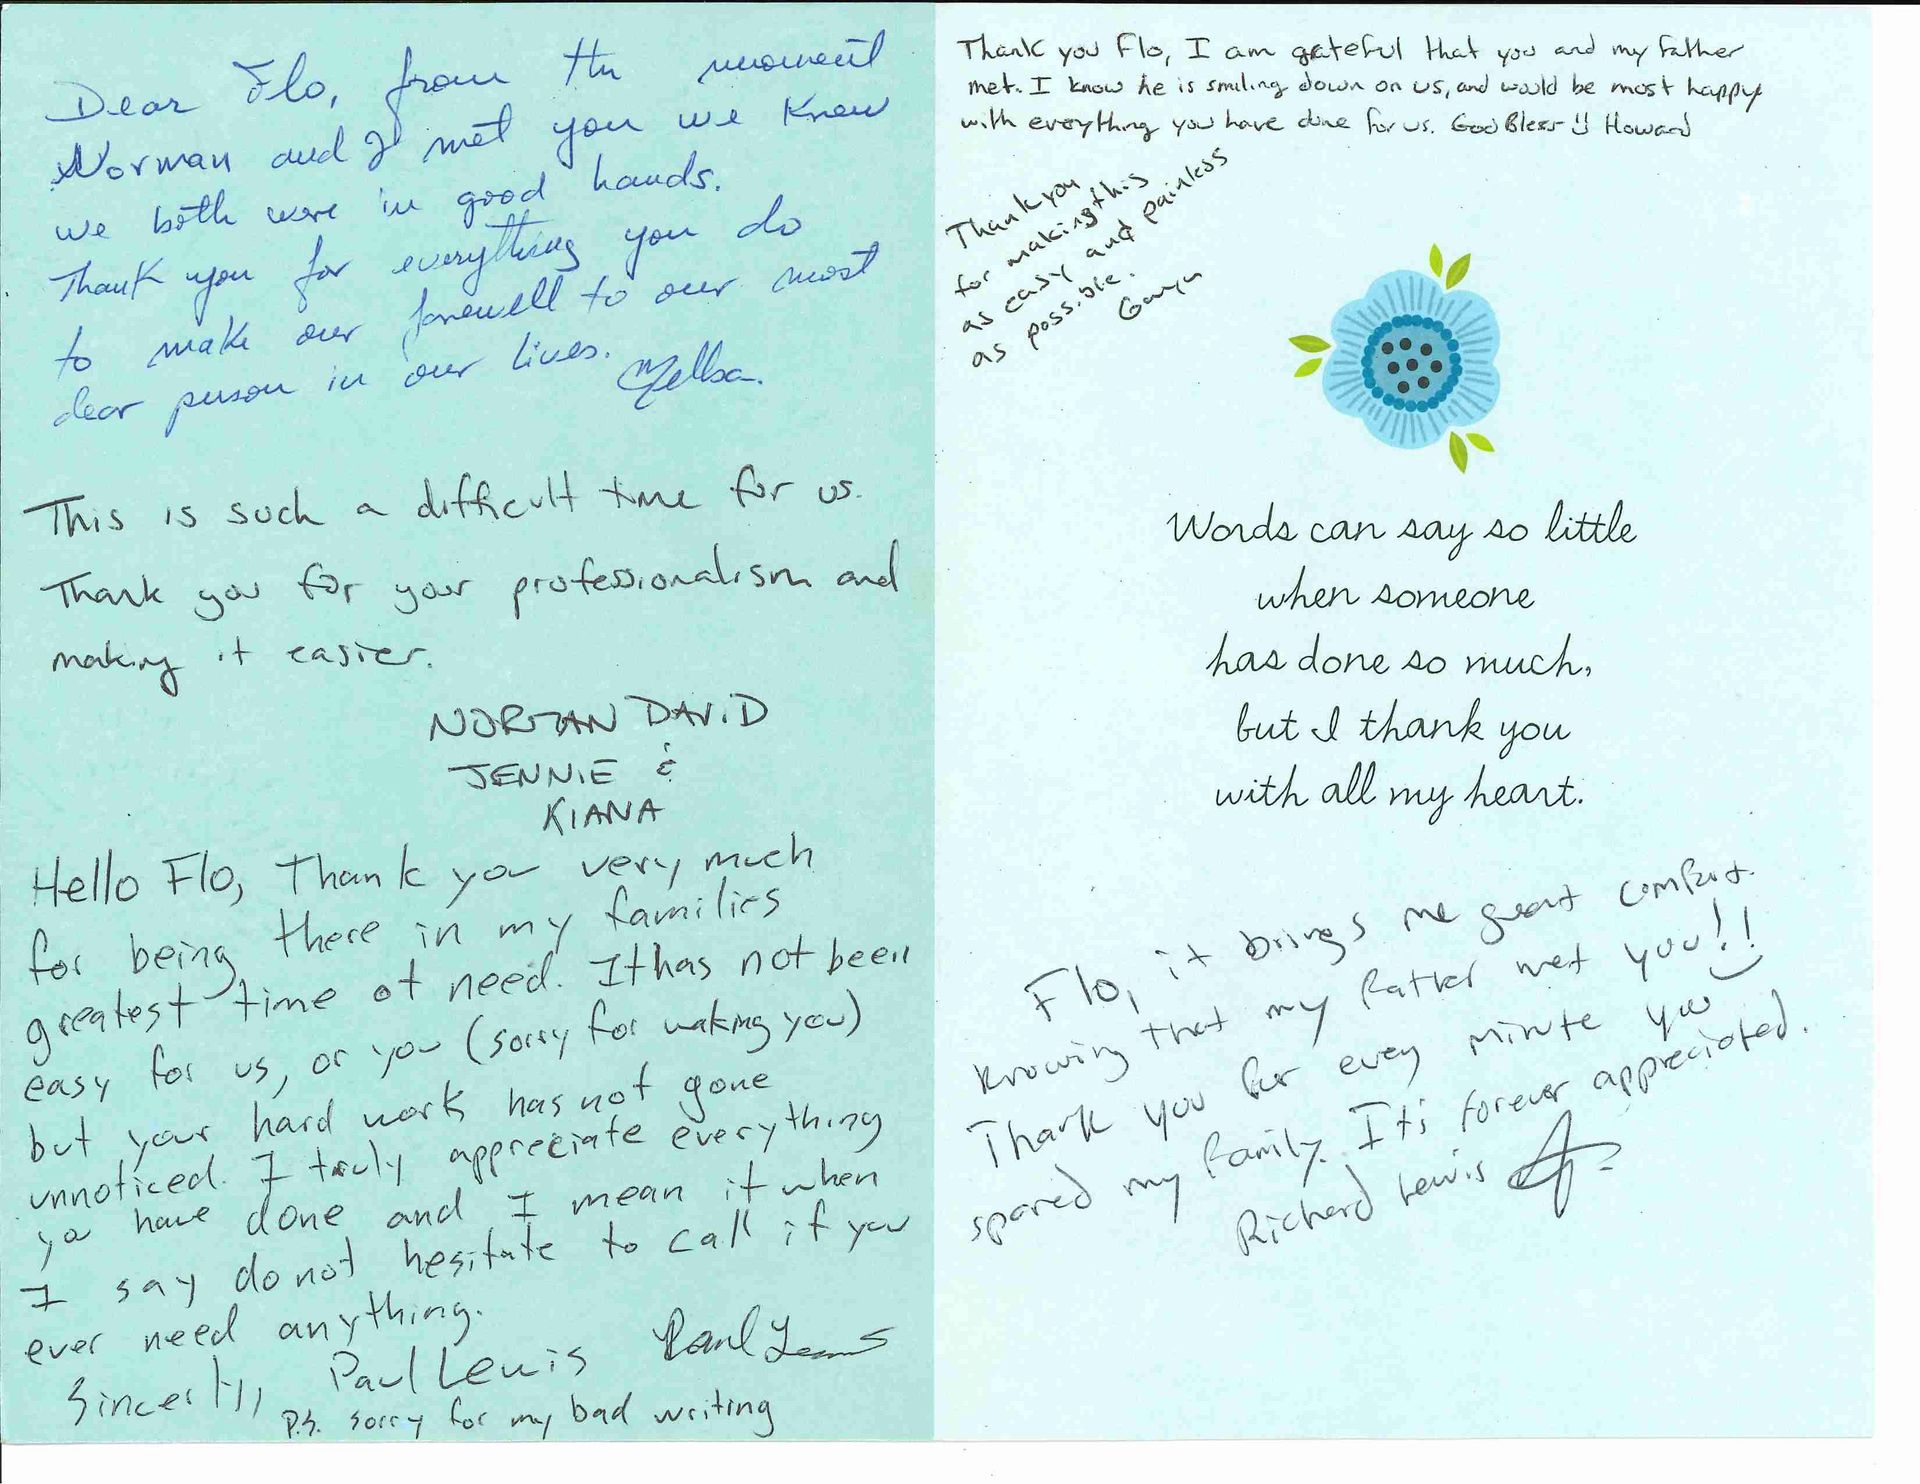 Dear Flo, from the moment
Norman and I met you we knew
we both were in good hands.
Thank you for everything you do
to make our farewell to our most
dear person in our lives. Melba.
This is such a difficult time for us.
Thank you for your professionalism and
making it easier.
NORMAN DAVID
JENNIE &
KIANA
Hello Flo, Thank you very much
for being there in my families
greatest time of need. It has not been
easy for us, or you (sorry for waking you)
but your hard work has not gone
unnoticed. I truly appreciate everything
you have done and I mean it when
I say do not hesitate to call if you
ever need anything.
Sincerly, Paul Lewis Paul Lewis
P.S. sorry for my bad writing
Thank you Flo, I am grateful that you and my father
met. I know he is smiling down on us, and would be most happy
with everything you have done for us. God Bless :) Howard
Thank you
for making this
as easy and painless
as possible.
Words can say so little
when someone
has done so much,
but I thank you
with all my heart.
Flo, it brings me great comfort
knowing that my father met you!!
Thank you for every minute you
spared my family. It's forever appreciated.
Richard Lewis